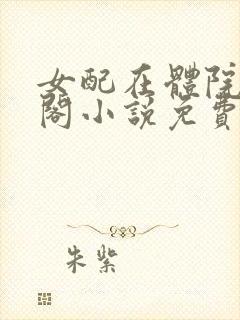 女配在體院
閣小說免費
朱紫